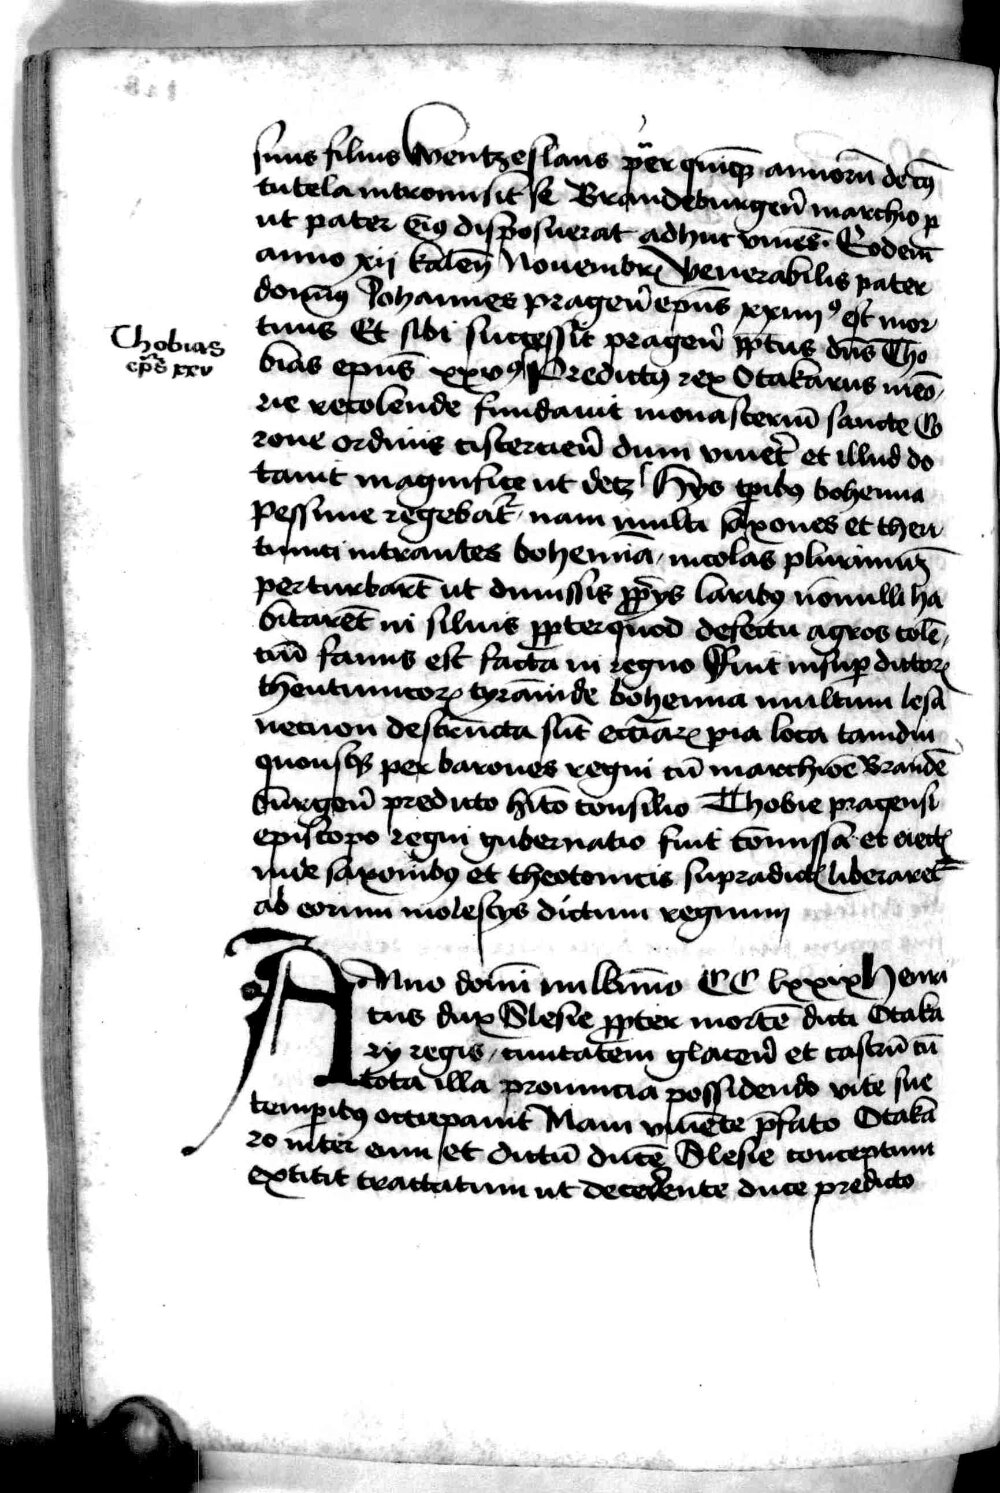 suus filius Wentzeslaus puer quinq annorũ de cuiꝰ
tutela intromisit se Brandeburgeñ marchio ꝑ
ut pater eiꝰ disposuerat adhuc viuēs. Eodem
anno xij kaleñ Nouembrꝭ venerabilis pater
domīꝰ Johannes prageñ epūs xxiiij ꝰ est mor
tuus Et sibi successit prageñ ppītus dūs Tho
bias epūs xxvꝰ Predictꝰ rex Otakarus meō
rie recolende fundauit monasteriū sancte Co
rone ordinis cistercieñ dum viuet᷑ et illud do
tauit magnifice ut decꝫ Hijs tꝑibꝰ bohemia
pessime regebat᷑ nam multi saxones et theu
tunici intrantes bohemiā incolas plurimum
perturbarūt ut dimissis ꝓprijs laribꝰ nōnulli ha
bitarēt in siluis ꝓpterquod defectu agros colē
ciū famis est facta in regno Fuit insuꝑ dictorꝝ
theutunicorꝝ tyrānide bohemia multum lesa
necnon destructa sūt ecciarꝝ pia loca tamdiu
quousqꝫ per barones regni cū marchiōe Brandē
burgeñ predicto hīto consilio Thobie pragensi
episcopo regni gubernatio fuit cōmissa et eiectꝭ
inde saxonibꝰ et theotonicis supradictꝭ liberaret᷑
ab eorum molestijs dictum regnum
Anno domī millīmo CC lxxix Henri
cus dux Slesie ꝓpter mortē dicti Otaka
ry regis ciuitatem glaceñ et castrū cū
tota illa prouincia possidendo vite sue
temꝑibꝰ occupauit Nam viuēte p̄fato Otaka
ro inter eum et dictū ducē Slesie conceptum
extitit tractatum ut decedente duce predicto
Thobias
epūs xxv